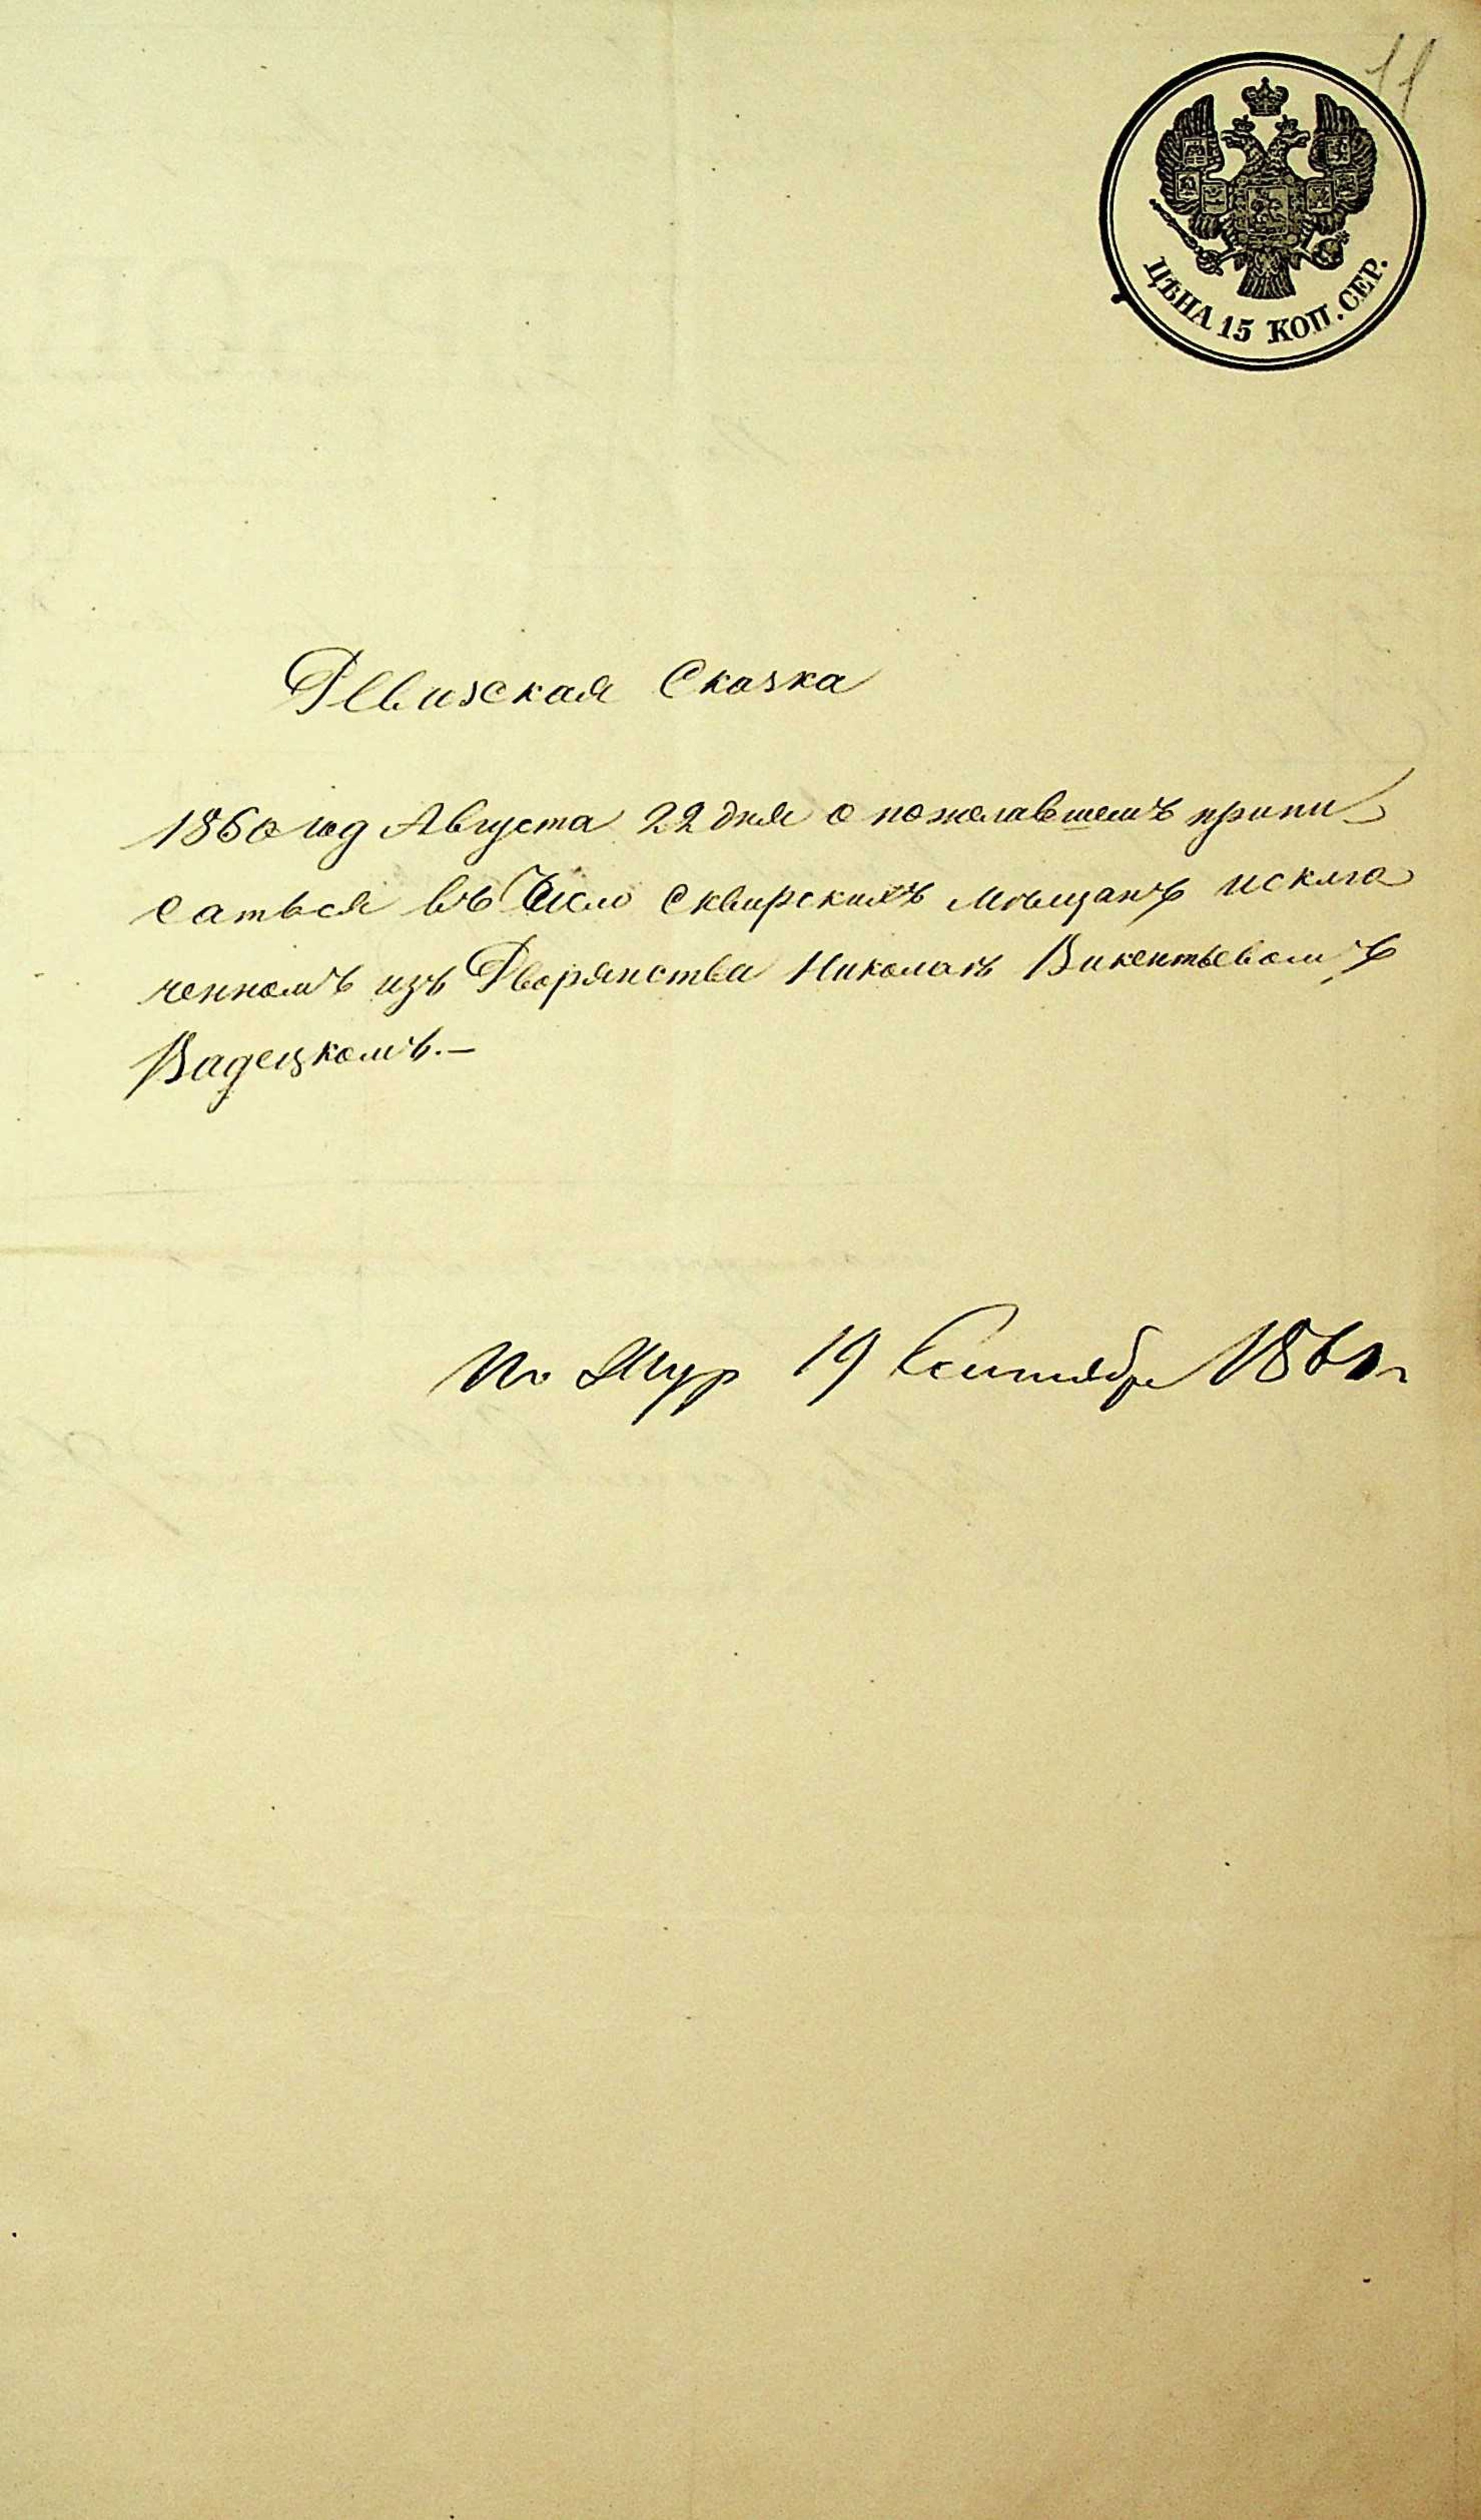 11
ЦѢНА 15 КОП. СЕР.
Ревизская Сказка
1860 год Августа 22 дня о пожелавшемъ припи-
саться въ Число Сквирскихъ Мѣщанъ исклю
ченномъ изъ Дворянства Николаѣ Викентьевомъ
Вадецкомъ.—
19 Сентября 1860 г